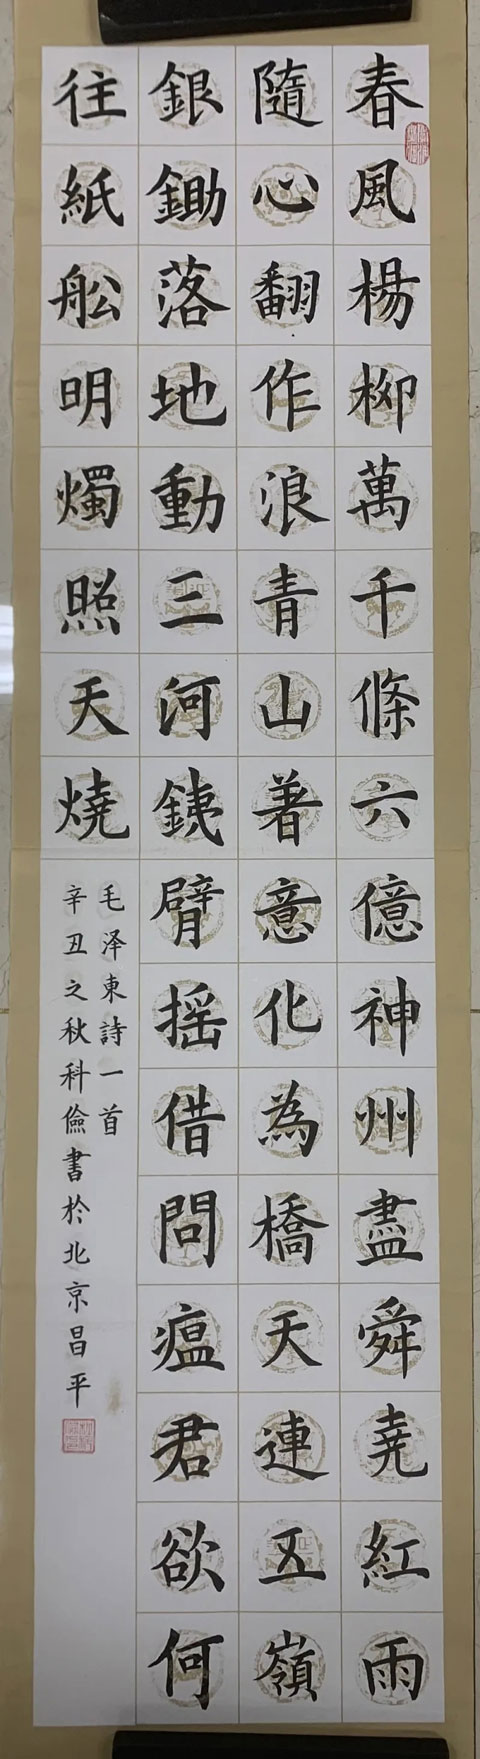 春風楊柳萬千條六億神州盡舜堯紅雨
隨心翻作浪青山著意化為橋天連五嶺
銀鋤落地動三河銕臂摇借問瘟君欲何
往紙舩明燭照天燒
毛泽東詩一首
辛丑之秋科儉書於北京昌平